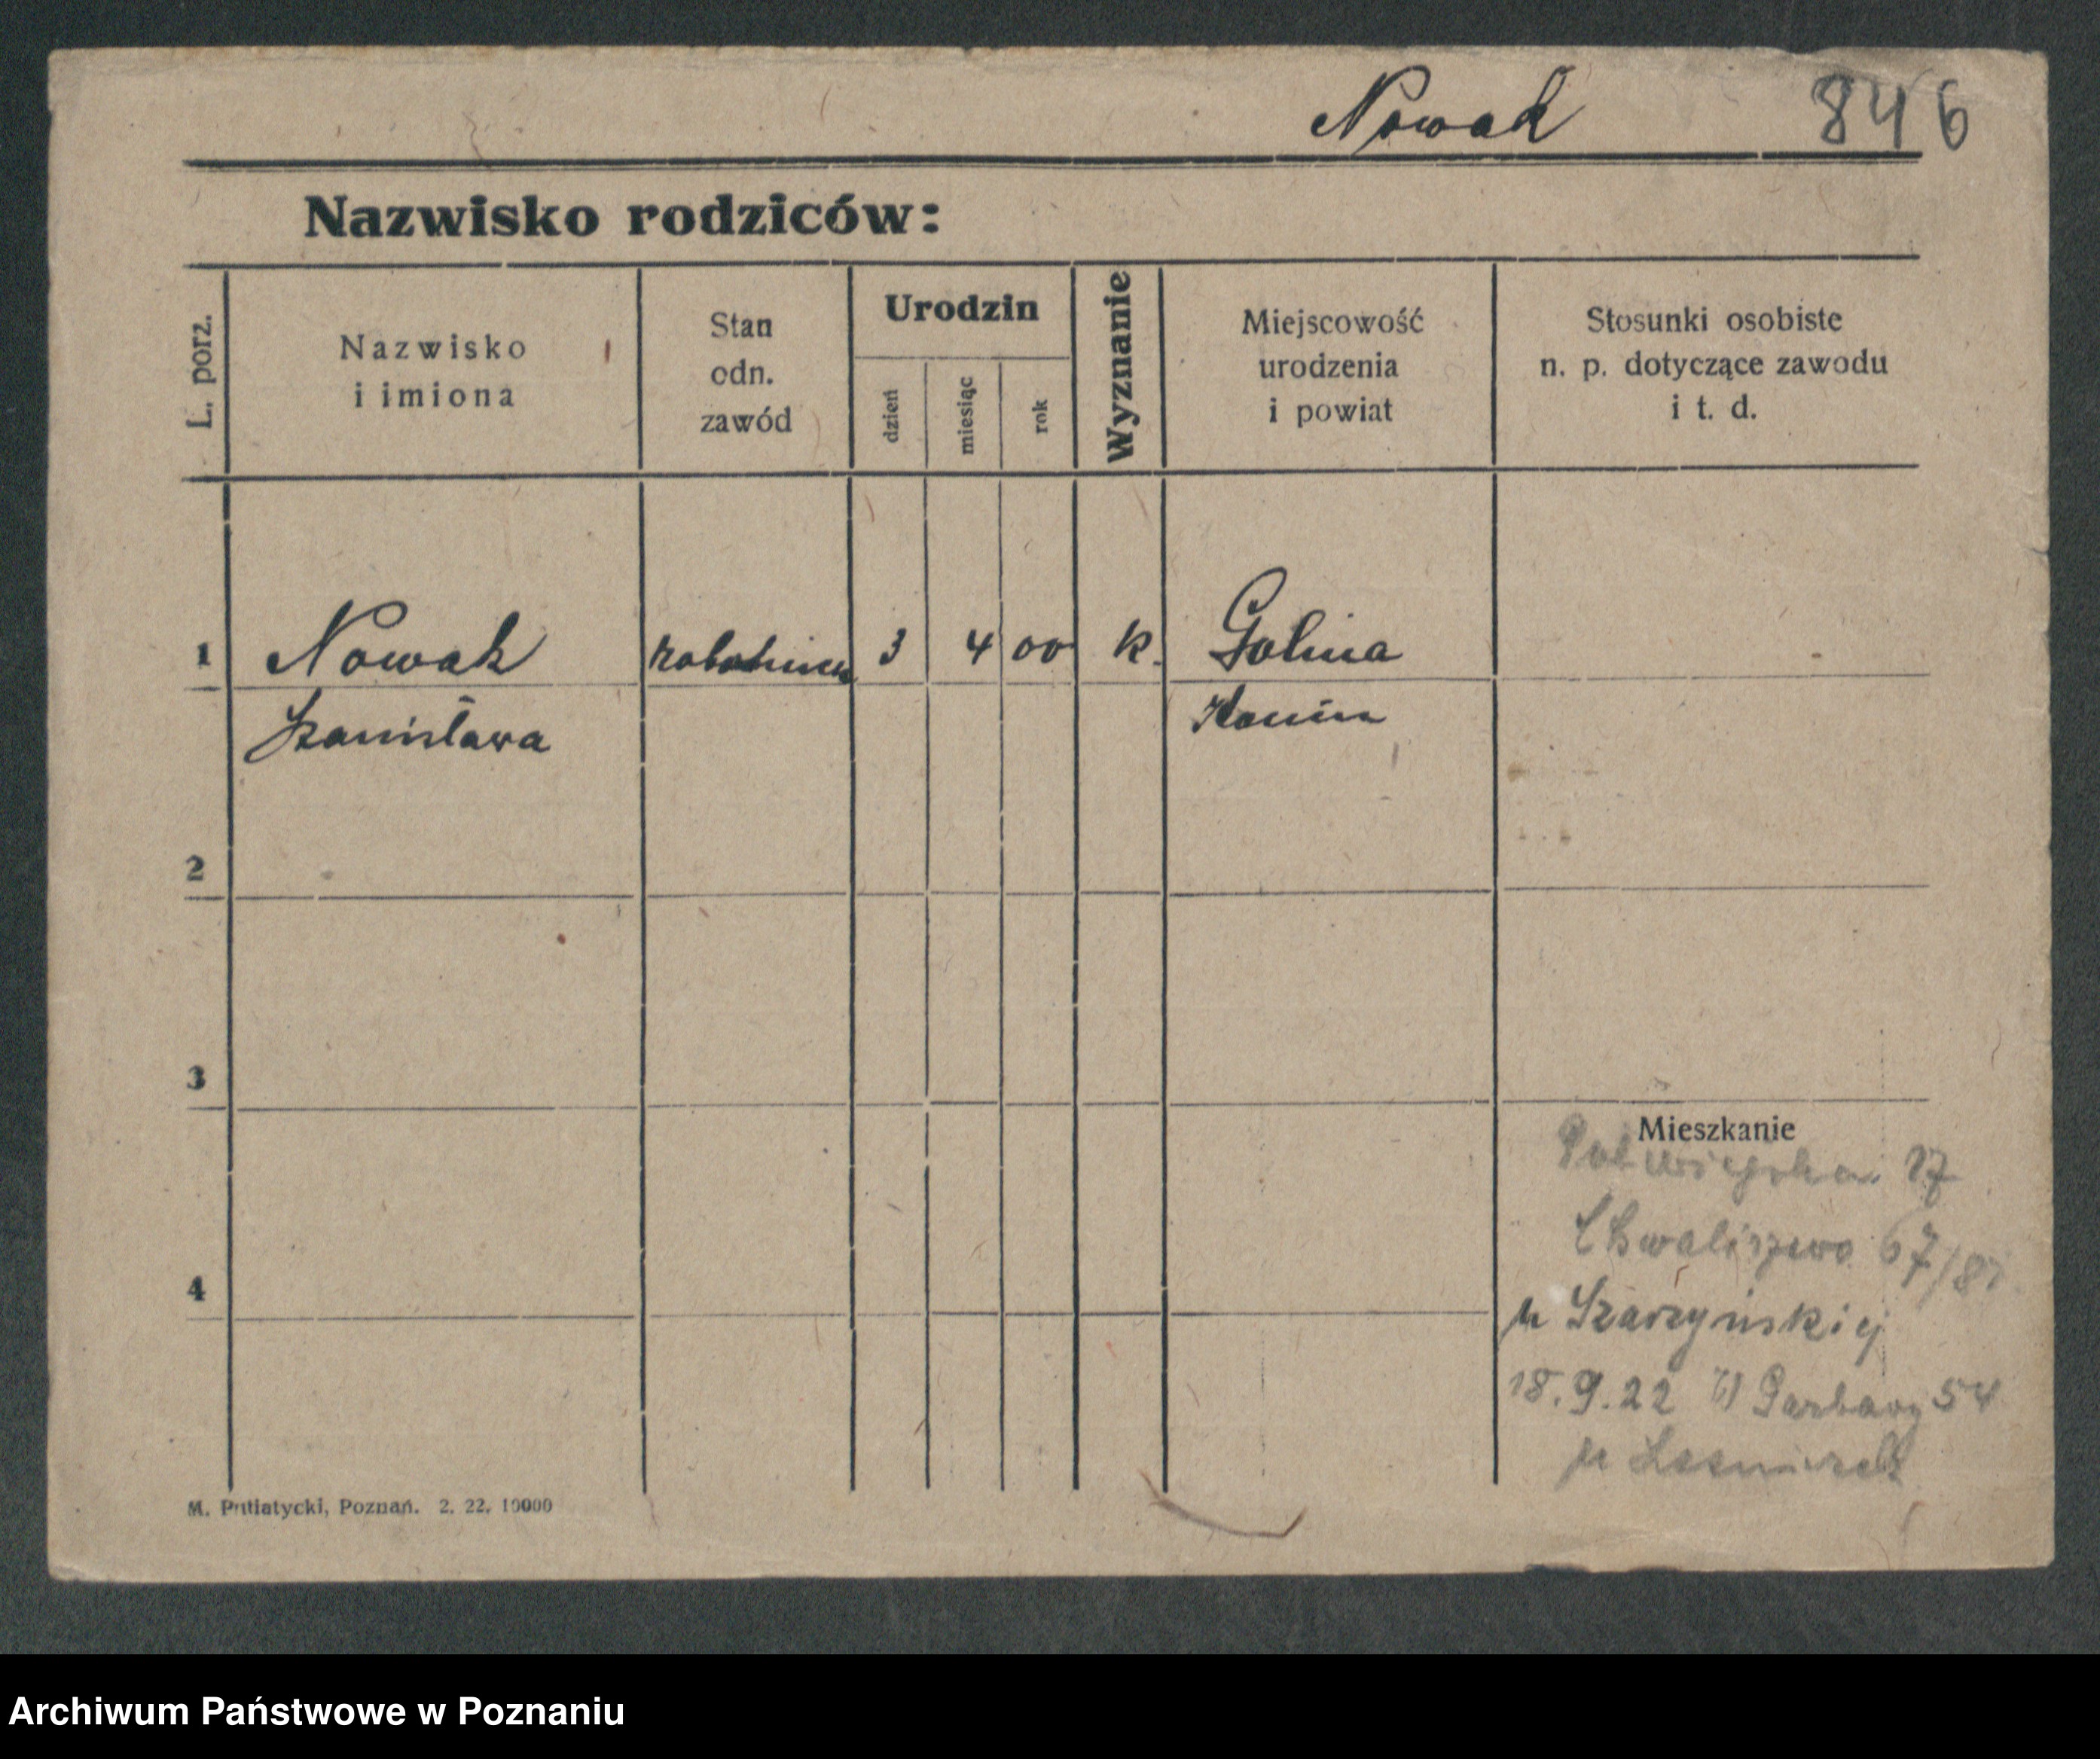 Nowak 846
Nazwisko rodziców:
L. porz.
Nazwisko
i imiona
Stan
odn.
zawód
Urodzin
dzień
miesiąc
rok
Wyznanie
Miejscowość
urodzenia
i powiat
Stosunki osobiste
n. p. dotyczące zawodu
i t. d.
1 Nowak 3 4 00 k. Golina
Stanisława Konin
2
3
Mieszkanie
Półwiejska 17
Chwaliszewo 67/
4
u Skarzyńskiej
18.9.22 Garbary 54
u
M. Putiatycki, Poznań. 2. 22. 10000
Archiwum Państwowe w Poznaniu